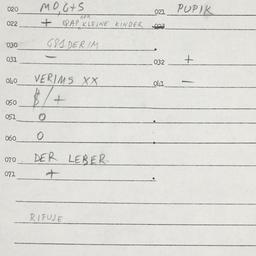 020 MO,G+S 021 PUPIK
022 + QAP KLEINE KINDER 023
030
031 - 032 +
040 VERIMS XX 041 -
050 $/+
051 0
060 0
070 DER LEBER
071 +
RIFUSE